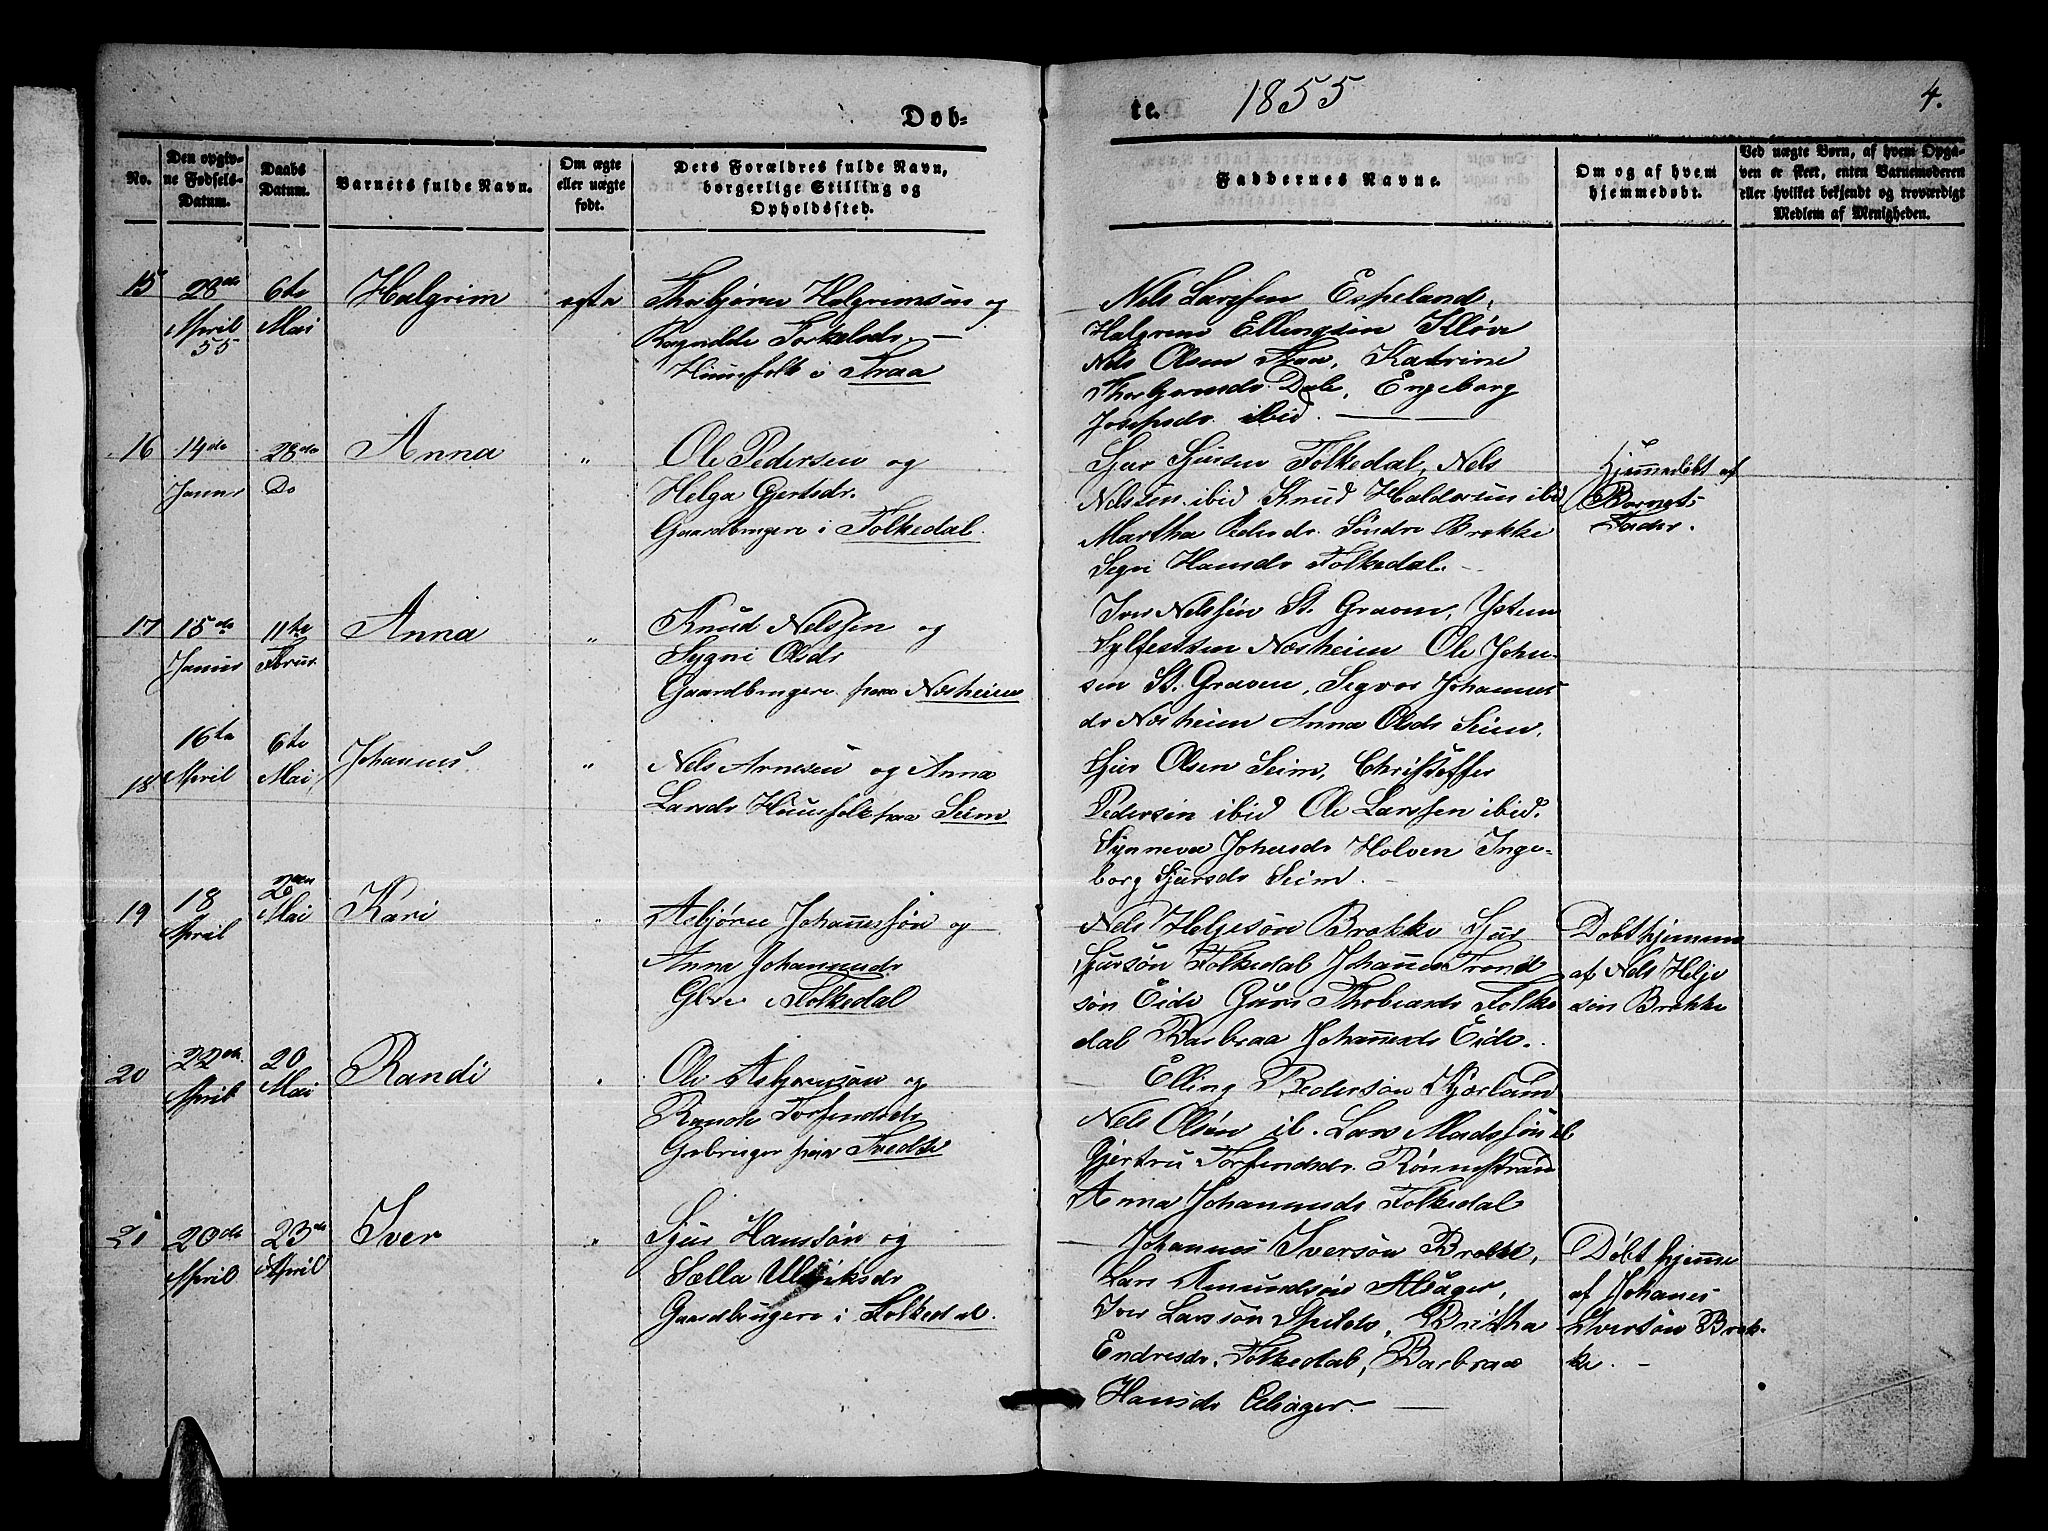 Døb-
te. 1855 4.
No.
Den opgivne Fødsels-Datum.
Daabs Datum.
Barnets fulde Navn.
Om ægte eller uægte født.
Dets Forældres fulde Navn, borgerlige Stilling og Opholdssted.
Faddernes Navne.
Om og af hvem hjemmedøbt.
Ved uægte Børn, af hvem Opgaven er skeet, enten Barnemoderen eller hvilket bekjendt og troværdigt Medlem af Menigheden.
15
28de
April
55
6te
Mai
Halgrim
egte
Thobjøren Halgrimsen og
Ragnilde Torkelsdr.
Huusfolk i Traa
Nels Larssen Espeland,
Halgrim Ellingsen Kløve
Nels Olsen Traa, Katrine
Thorbjørnsdr. Dale, Engeborg
Josepsdr ibid.
16
14de
Januar
28de
Do
Anna
"
Ole Pedersen og
Helga Gjertsdr.
Gaardbrugere i Folkedal.
Sjur Sjursen Folkedal, Nels
Nelssen ibid Knud Haldorsen ibid
Martha Pedersdr. Søndre Brekke
Segri Hansdr Folkedal.
Hjemmedøbt af
Barnets
Fader.
17
15de
Januar
11te
Februr
Anna
"
Knud Nelssen og
Sygni Olsdr
Gaardbrugere paa Nesheim
Iver Nelssen St. Graven, Ysten
Sylfestsen Nesheim Ole Johan-
sen St. Graven, Segvor Johannes
dr Nesheim Anna Olsdr Seim.
18
16te
April
6te
Mai
Johannes
"
Nels Arnesen og Anna
Larsdr Huusfolk paa Seim
Sjur Olsen Seim, Christoffer
Pedersen ibid Ole Larssen ibid.
Synneva Johansdr Holven Inge-
borg Sjursdr Seim.
19
18
April
2den
Mai
Kari
"
Asbjøren Johannessøn og
Anna Johannesdr
Gbre i Folkedal
Nels Helgesøn Brekke Sjur
Sjursøn Folkedal Johannes Trond
søn Eide Guro Thobiasdr Folke
dal Barbraa Johannesdr Eide.
Døbt hjemme
af Nels Helje
søn Brekke
20
22de
April
20
Mai
Randi
"
Ole Asbjørnsøn og
Rande Torfendsdr
Gbruger paa Tvedte
Elling Pedersøn Kjærland
Nels Olsøn ib. Lars Madssøn ib
Gjertru Torfendsdr. Rønnestrand
Anna Johannesdr Folkedal
21
20de
April
23de
April
Iver
"
Sjur Hanssøn og
Sella Ulriksdr
Gaardbrugere i Folkedal.
Johannes Iversøn Brekke,
Lars Amundsøn Alsager,
Iver Larssøn Spildo, Britha
Endresdr. Folkedal, Barbraa
Hansdr Alsager.
Døbt hjemme
af Johanes
Iversøn Brek-
ke.